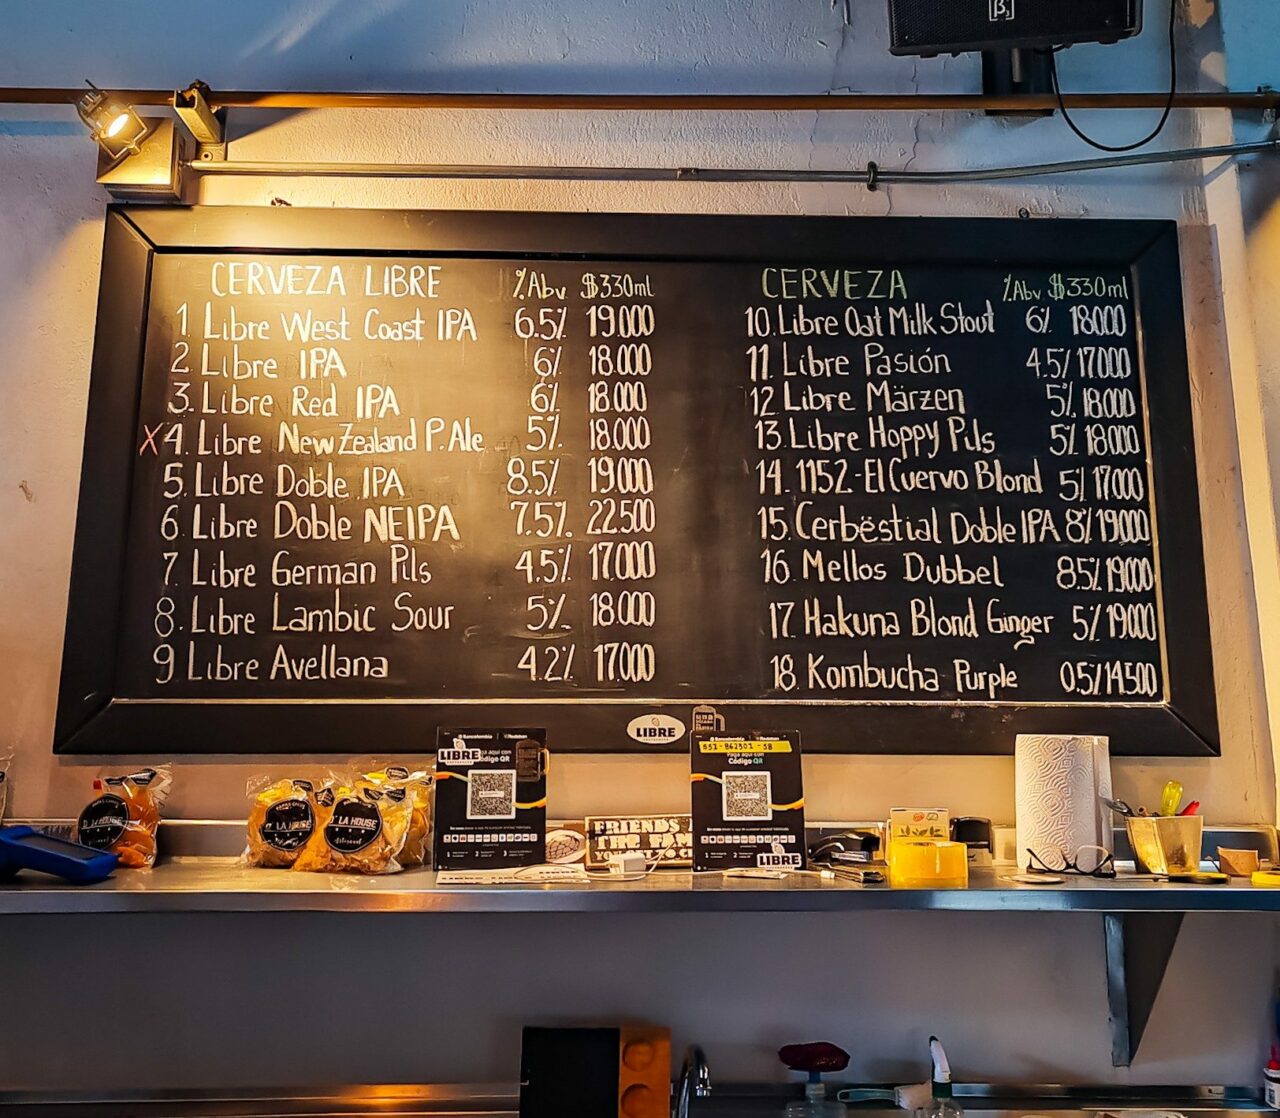 CERVEZA LIBRE %Abv $330ml
1 Libre West Coast IPA 6.5% 19.000
2 Libre IPA 6% 18.000
3. Libre Red IPA 6% 18.000
X4. Libre New Zealand P. Ale 5% 18.000
5. Libre Doble IPA 8.5% 19.000
6. Libre Doble NEIPA 7.5% 22.500
7. Libre German Pils 4.5% 17.000
8. Libre Lambic Sour 5% 18.000
9 Libre Avellana 4.2% 17.000
CERVEZA %Abv $330ml
10. Libre Oat Milk Stout 6% 18.000
11. Libre Pasión 4.5% 17.000
12 Libre Märzen 5% 18.000
13. Libre Hoppy Pils 5% 18.000
14. 1152-El Cuervo Blond 5% 17.000
15. Cerbëstial Doble IPA 8% 19.000
16 Mellos Dubbel 8.5% 19.000
17. Hakuna Blond Ginger 5% 19.000
18. Kombucha Purple 0.5% 14.500
LIBRE
LIBRE
Código QR
Bancolombia Redeban
551-862301-58
Paga aquí con
Código QR
LIBRE
LA HOUSE
LA HOUSE
FRIENDS
THE FAM